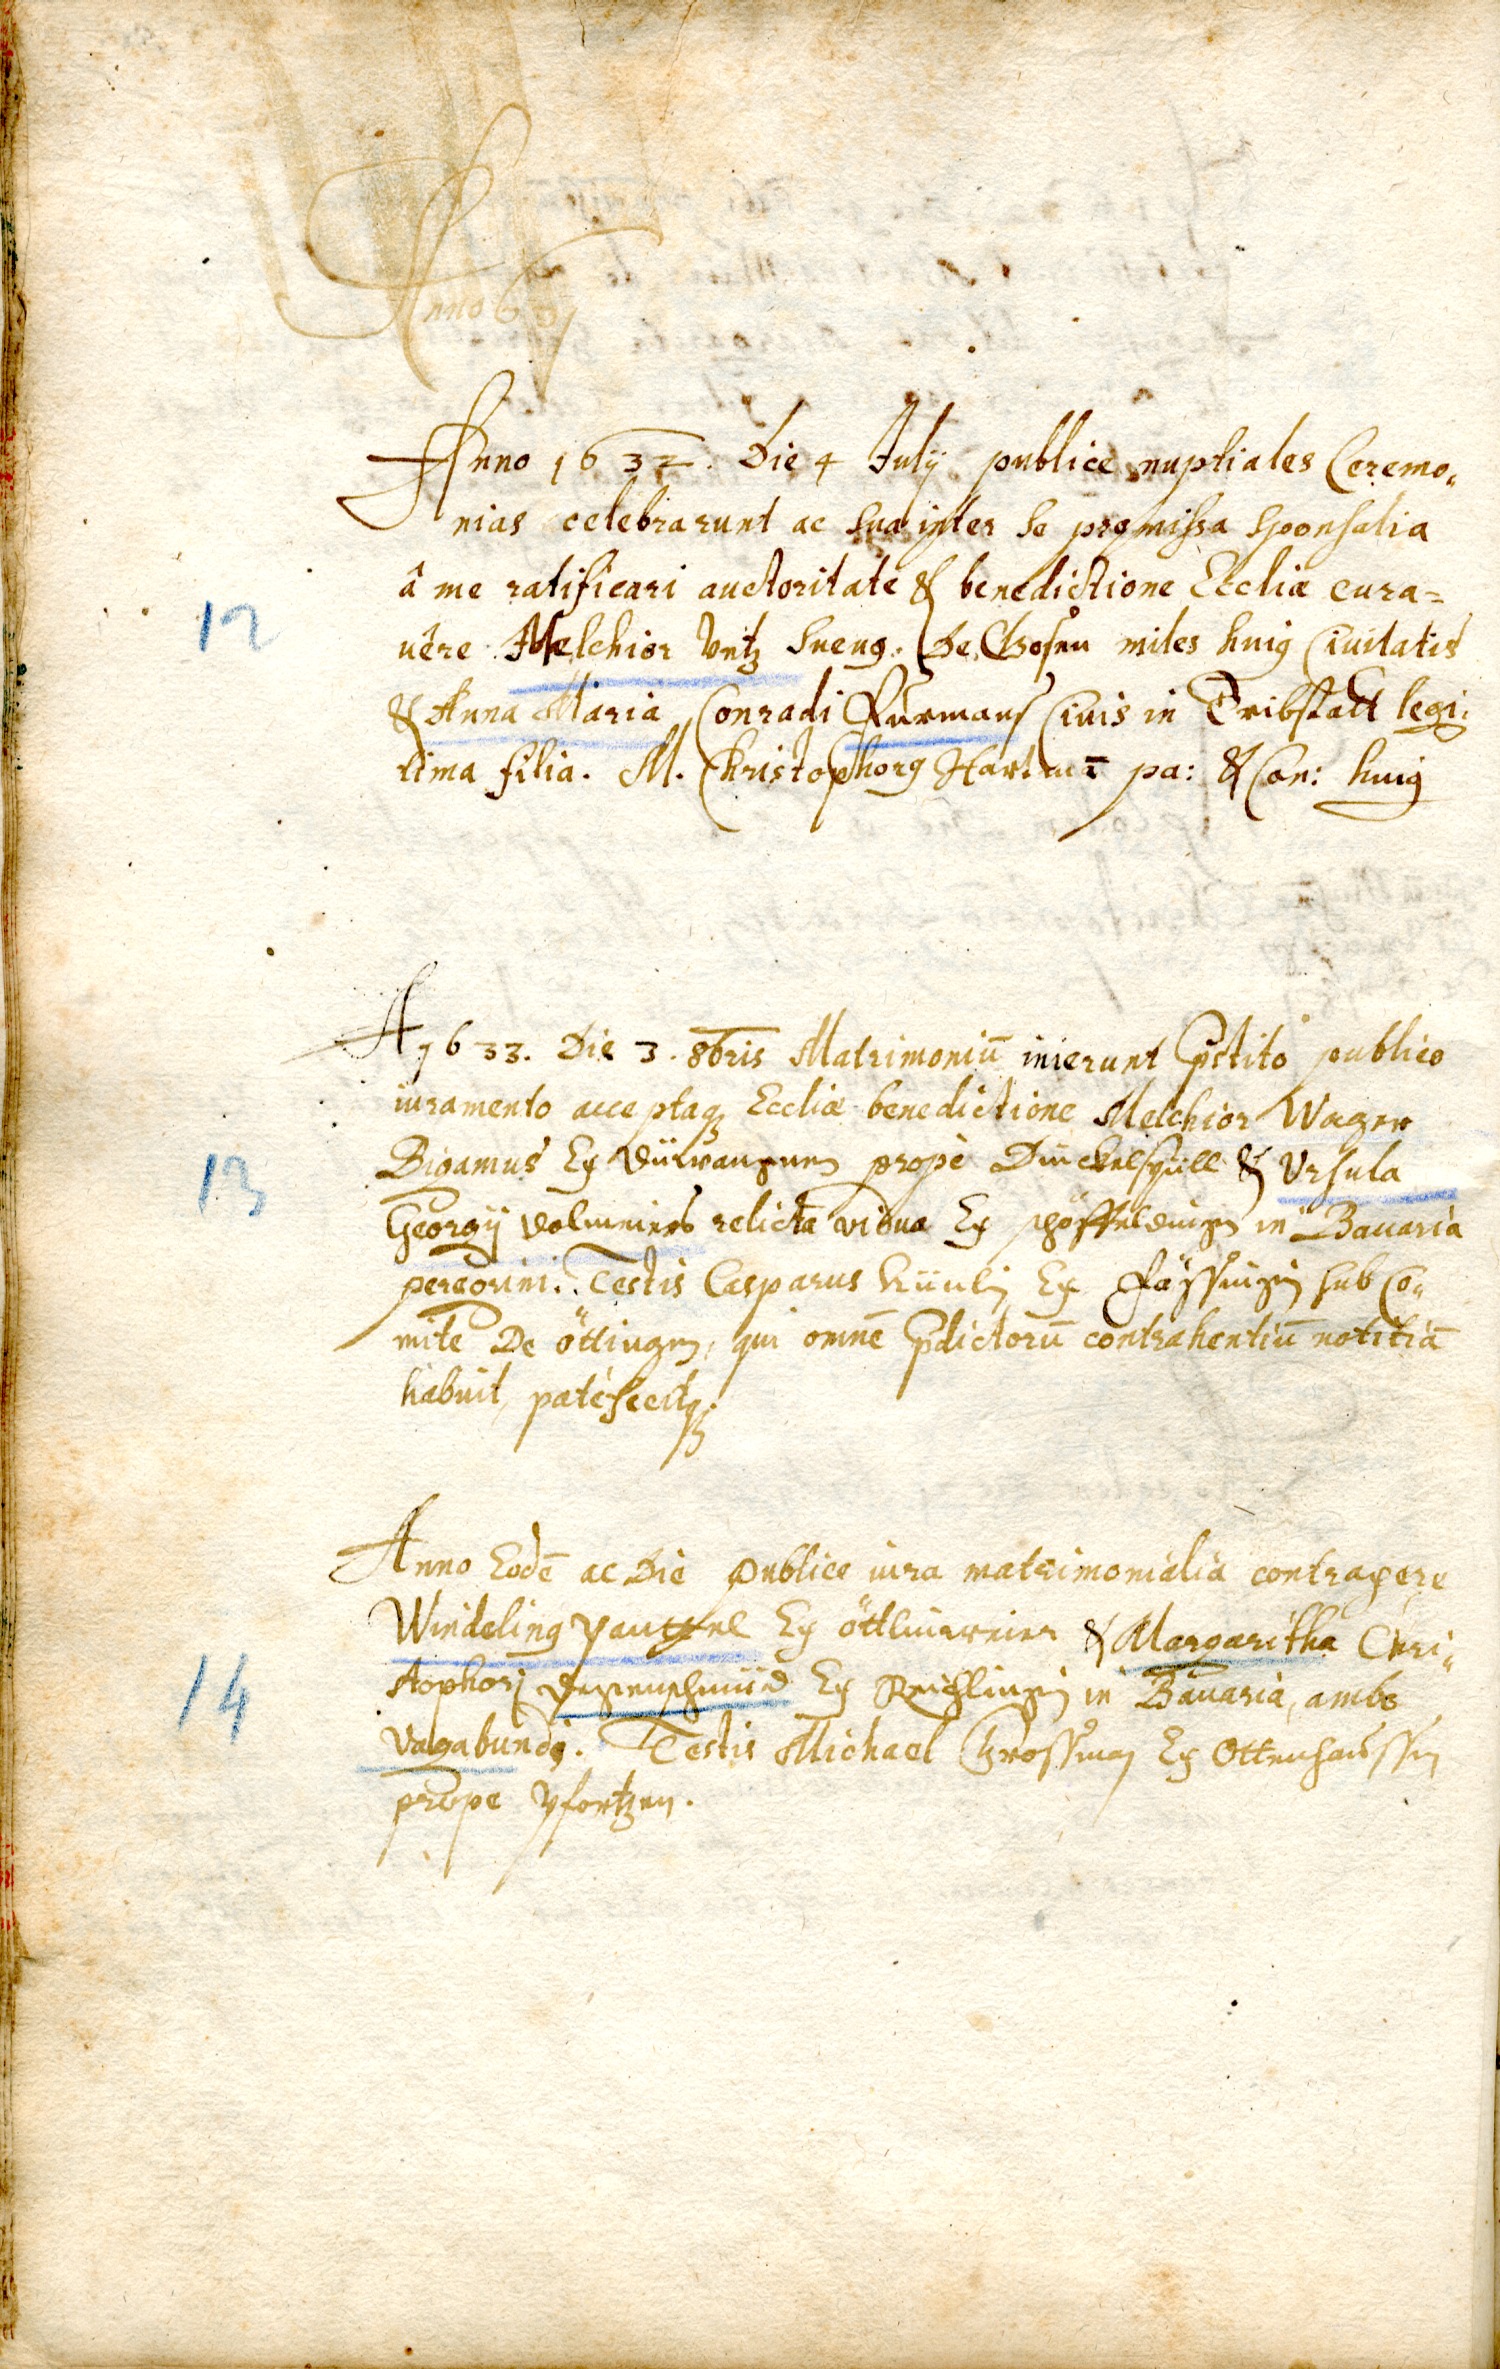 Anno 163
Anno 1632. Die 4 Julÿ publice nuptiales Ceremo„
nias celebrarunt ac sua inter se promissa sponsalia
â me ratificari auctoritate & benedictione Eccliæ cura=
12
uêre Melchior Untz Sueuꝯ. De miles huiꝯ Ciuitatis
& Anna Maria Conradi Furmans Ciuis in Tribstatt legi„
tima filia. M. Christophorꝯ Hartmā pa: & Can: huiꝯ
A 1633. Die 3. 8bris Matrimoniū inierunt pstito publico
iuramento acceptaqꝫ Eccliæ benedictione Melchior Wager
13
Bigamus Ex Dürwangen prope Dinckelspüll & Ursula
Georgÿ Volmeiers relicta vidua Ex in Bauaria
peregrini. Testis Casparus Ex sub Co„
mite De öttingen, qui omnē pdictorū contrahentiū notitiā
habuit, patefecitqꝫ.
Anno Eodē ac Die publice iura matrimonialia contraxere
Windelinꝯ Ex öttlinsweier & Margaritha Chri„
14
stophorj Ex Reichlingen in Bauaria, ambo
vagabundj. Testis Michael Grossman Ex Ottenhaussen
prope Pfortzen.